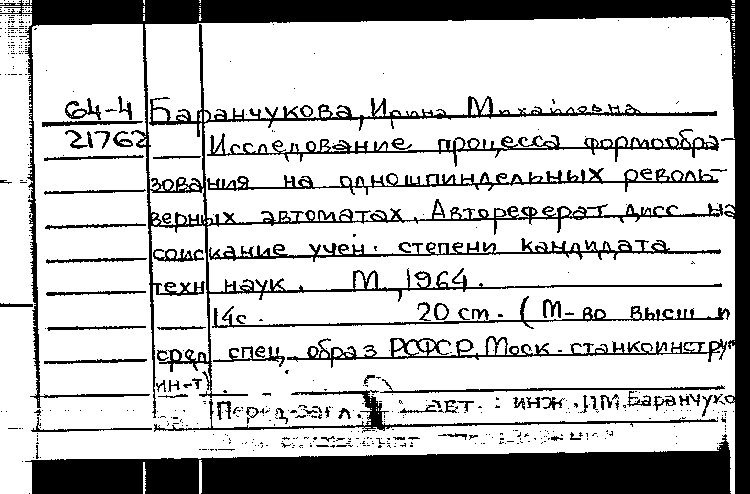 64-4 Баранчукова, Ирина Михайловна
21762 Исследование процесса формообра-
зования на одношпиндельных револь-
верных автоматах. Автореферат дисс. на
соискание учен. степени кандидата
техн наук. М., 1964.
14с. 20 cm. (М-во высш и
сред спец. образ РСФСР, Моск. станкоинстру
ин-т)
Перед загл. авт. : инж. И.М. Баранчуко